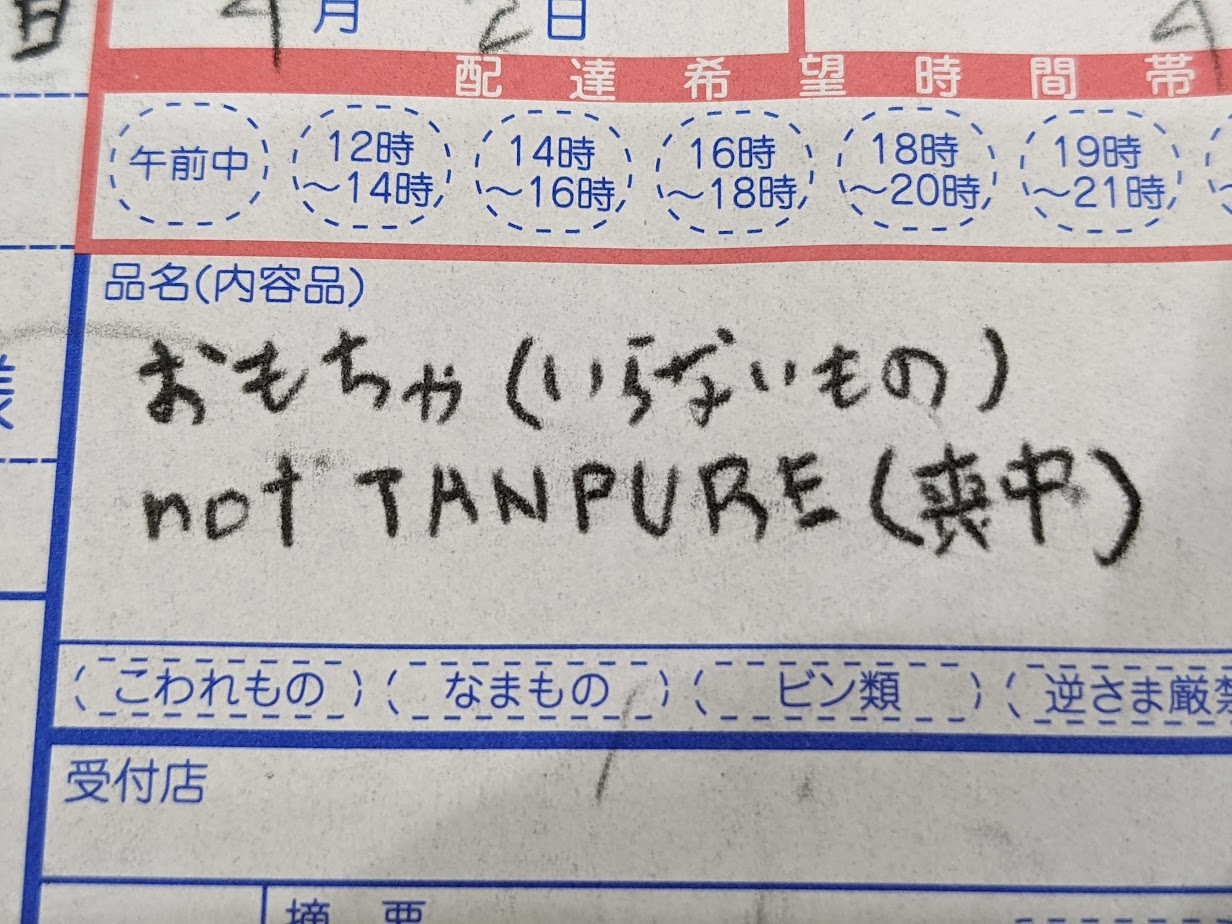 日 4月 2日
配達希望時間帯
午前中 12時～14時 14時～16時 16時～18時 18時～20時 19時～21時
品名(内容品)
おもちゃ(いらないもの)
様
not TANPURE(喪中)
こわれもの なまもの ビン類 逆さま厳禁
受付店
摘要